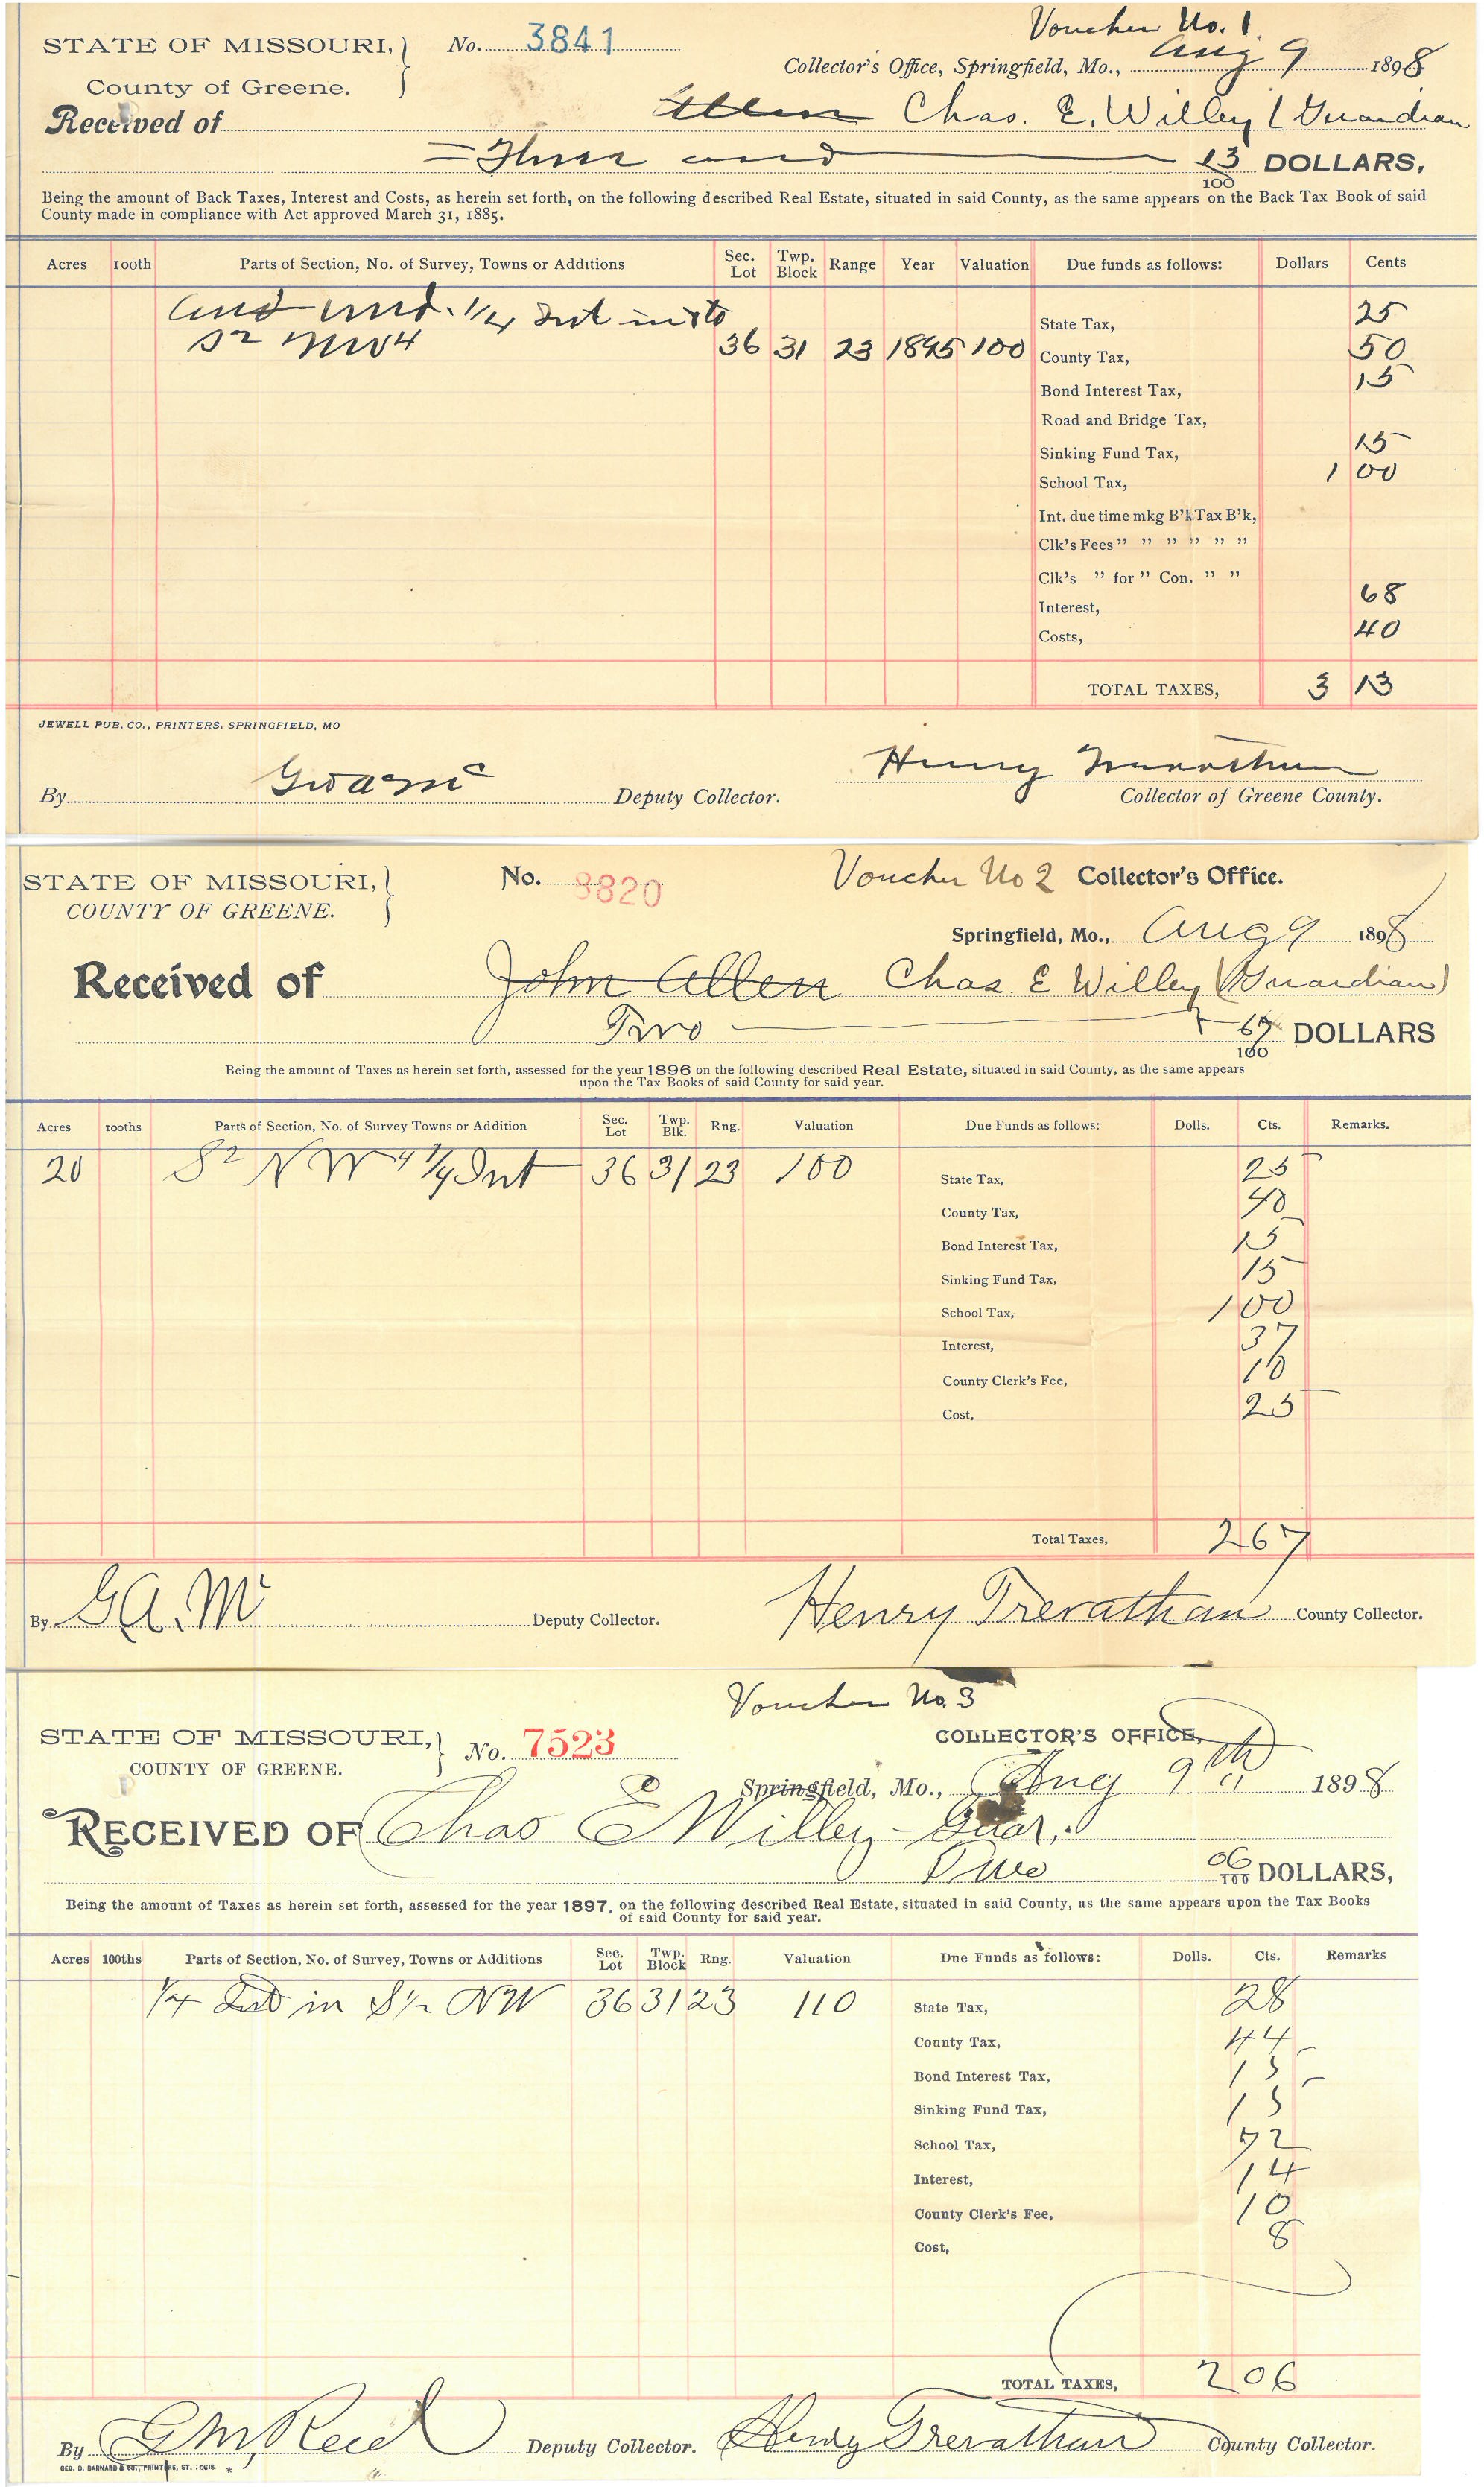 Voucher No. 1.
STATE OF MISSOURI, } No. 3841
Collector's Office, Springfield, Mo., Aug 9 1898
County of Greene.
Received of Allen Chas. E. Willey (Guardian
= Three and 13/100 DOLLARS,
Being the amount of Back Taxes, Interest and Costs, as herein set forth, on the following described Real Estate, situated in said County, as the same appears on the Back Tax Book of said
County made in compliance with Act approved March 31, 1885.
Acres 100th Parts of Section, No. of Survey, Towns or Additions Sec. Lot Twp. Block Range Year Valuation Due funds as follows: Dollars Cents
und. 1/4 Int in to
State Tax, 25
S2 NW4 36 31 23 1895 100 County Tax, 50
Bond Interest Tax, 15
Road and Bridge Tax,
Sinking Fund Tax, 15
School Tax, 1 00
Int. due time mkg B'k Tax B'k,
Clk's Fees " " " " " "
Clk's " for " Con. " "
Interest, 68
Costs, 40
TOTAL TAXES, 3 13
JEWELL PUB. CO., PRINTERS. SPRINGFIELD, MO
By Deputy Collector. Henry Trevathan
Collector of Greene County.
STATE OF MISSOURI, } No. 3820 Voucher No 2 Collector's Office.
COUNTY OF GREENE.
Springfield, Mo., Aug 9 1898
Received of John Allen Chas. E Willey (Guardian)
Two 67/100 DOLLARS
Being the amount of Taxes as herein set forth, assessed for the year 1896 on the following described Real Estate, situated in said County, as the same appears
upon the Tax Books of said County for said year.
Acres 100ths Parts of Section, No. of Survey Towns or Addition Sec. Lot Twp. Blk. Rng. Valuation Due Funds as follows: Dolls. Cts. Remarks.
20 S2 NW4 1/4 Int 36 31 23 100 State Tax, 25
County Tax, 40
Bond Interest Tax, 15
Sinking Fund Tax, 15
School Tax, 1 00
Interest, 37
County Clerk's Fee, 10
Cost, 25
Total Taxes, 2 67
By G.A. Mc Deputy Collector. Henry Trevathan County Collector.
Voucher No. 3
STATE OF MISSOURI, } No. 7523 COLLECTOR'S OFFICE,
COUNTY OF GREENE.
Springfield, Mo., Aug 9th 1898
RECEIVED OF Chas E Willey - Guar.
Two 06/100 DOLLARS,
Being the amount of Taxes as herein set forth, assessed for the year 1897, on the following described Real Estate, situated in said County, as the same appears upon the Tax Books
of said County for said year.
Acres 100ths Parts of Section, No. of Survey, Towns or Additions Sec. Lot Twp. Block Rng. Valuation Due Funds as follows: Dolls. Cts. Remarks
1/4 Int in S 1/2 NW 36 31 23 110 State Tax, 28
County Tax, 44
Bond Interest Tax, 15
Sinking Fund Tax, 15
School Tax, 72
Interest, 14
County Clerk's Fee, 10
Cost, 8
TOTAL TAXES, 2 06
By G M, Reed Deputy Collector. Henry Trevathan County Collector.
GEO. D. BARNARD & CO., PRINTERS, ST. LOUIS